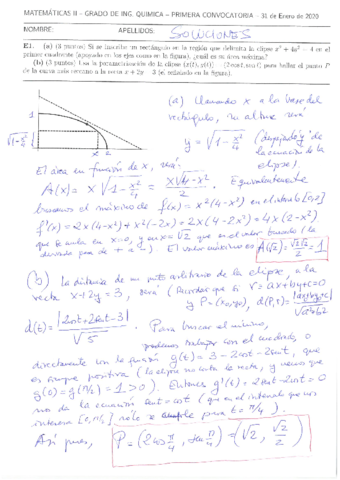 MATEMÁTICAS II – GRADO DE ING. QUIMICA – PRIMERA CONVOCATORIA - 31 de Enero de 2020
NOMBRE: APELLIDOS: SOLUCIONES
E1. (a) (3 puntos) Si se inscribe un rectángulo en la región que delimita la elipse x² + 4y² = 4 en el
primer cuadrante (apoyado en los ejes como en la figura), ¿cuál es su área máxima?
(b) (3 puntos) Usa la parametrización de la elipse (x(t), y(t)) = (2 cos t, sen t) para hallar el punto P
de la curva más cercano a la recta x + 2y = 3 (el señalado en la figura).
(a) Llamando x a la base del
rectángulo, su altura será
y = √(1 - x²/4) (despejado y de
la ecuación de la
elipse).
1
√(1-x²/4)
x 2
El área en función de x, será:
A(x) = x √(1 - x²/4) = x√(4-x²)/2. Equivalentemente
buscamos el máximo de f(x) = x²(4-x²) en el intervalo [0,2]
f'(x) = 2x(4-x²) + x²(-2x) = 2x(4-2x²) = 4x(2-x²)
que se anula en x=0, y en x=√2 que es el valor buscado (la
derivada pasa de + a -). El valor máximo es A(√2) = √2√2/2 = 1
(b) La distancia de un punto arbitrario de la elipse, a la
recta x+2y=3, será (Recordar que si r = ax+by+c=0
y P=(x₀,y₀), d(P,r) = |ax₀+by₀+c|/√(a²+b²)
d(t) = |2cost+2sent-3|/√5. Para buscar el mínimo,
podemos trabajar con el numerador, o
directamente con la función g(t) = 3-2cost-2sent, que
es siempre positiva (la elipse no corta la recta, y vemos que
g(0) = g(π/2) = 1 > 0). Entonces g'(t) = 2sent-2cost = 0
nos da la ecuación sent = cost (que en el intervalo que nos
interesa [0,π/2] sólo se cumple para t = π/4)
Así pues, P = (2cos π/4, sen π/4) = (√2, √2/2)